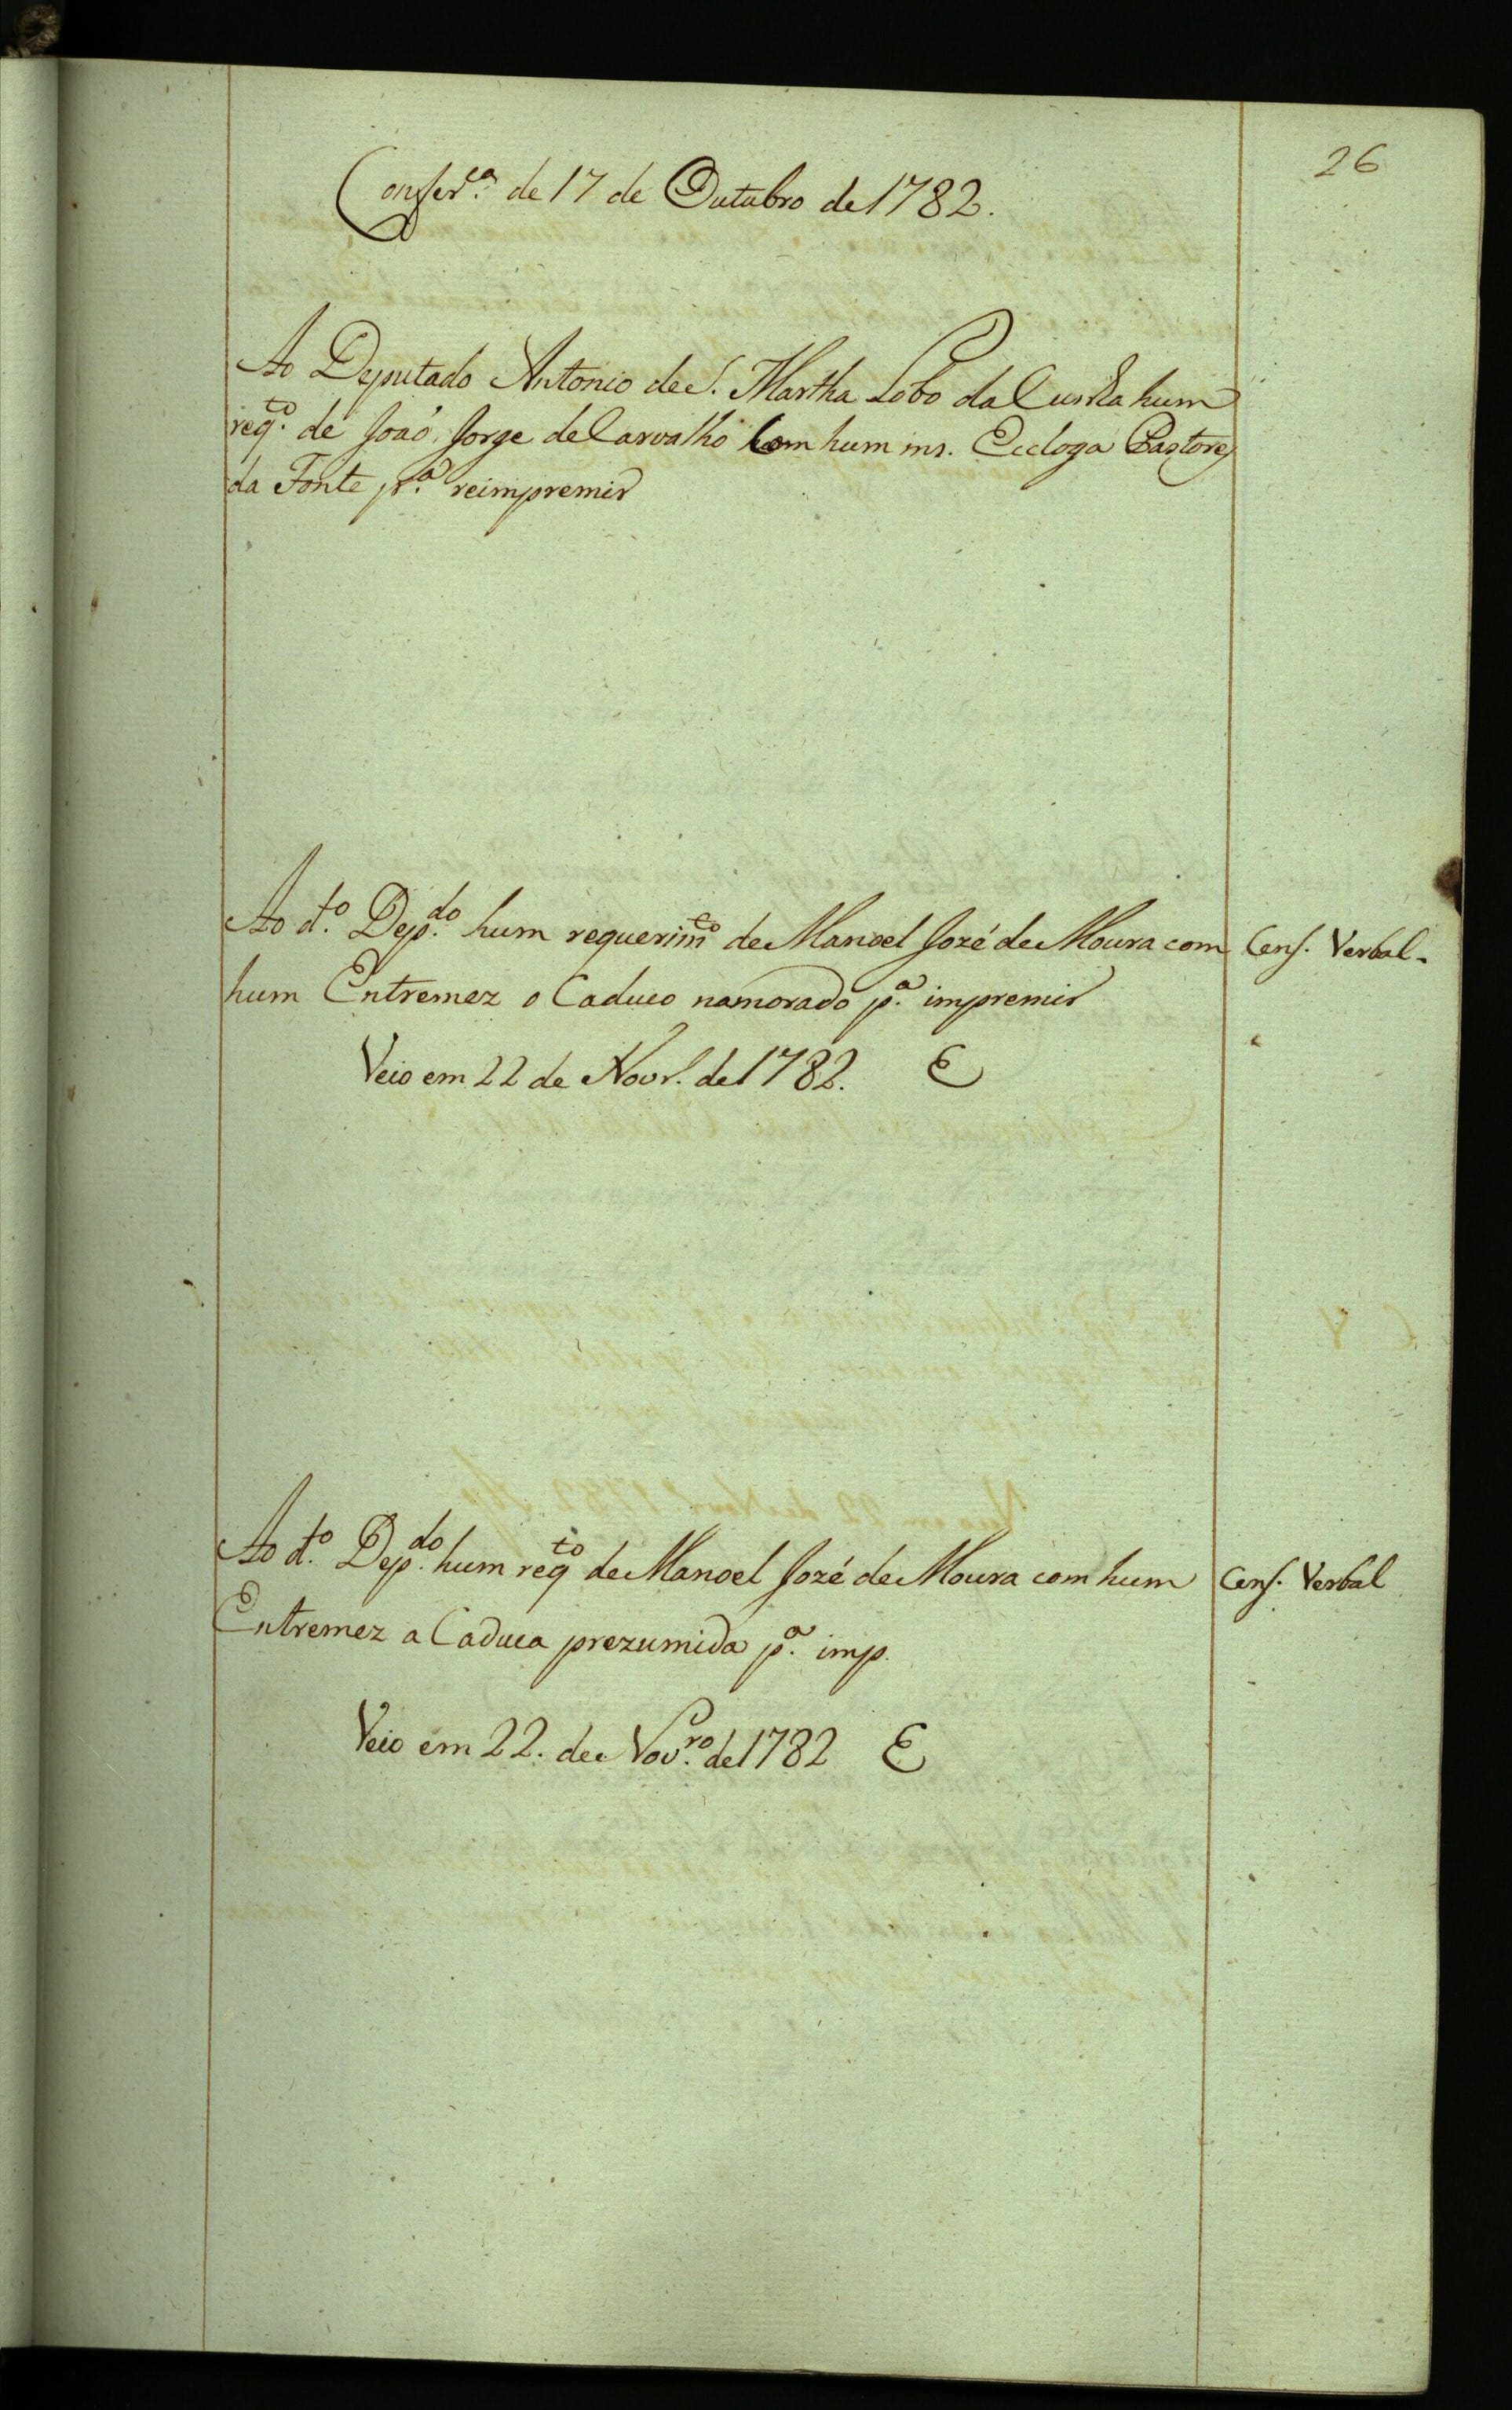 26
Confer.ca de 17 de Outubro de 1782.
Ao Deputado Antonio de S. Martha Lobo da Cunha hum
req.to de Joaõ Jorge de Carvalho com hum ms. Ecloga Pastores
da Fonte p.a reimpremir
Ao d.to Dep.do hum requerim.to de Manoel Jozé de Moura com
Cens. Verbal.
hum Entremez o Caduco namorado p.a impremir
Veio em 22 de Novr. de 1782. E
Ao d.to Dep.do hum req.to de Manoel Jozé de Moura com hum
Cens. Verbal
Entremez a Caduca prezumida p.a imp.
Veio em 22. de Nov.ro de 1782 E